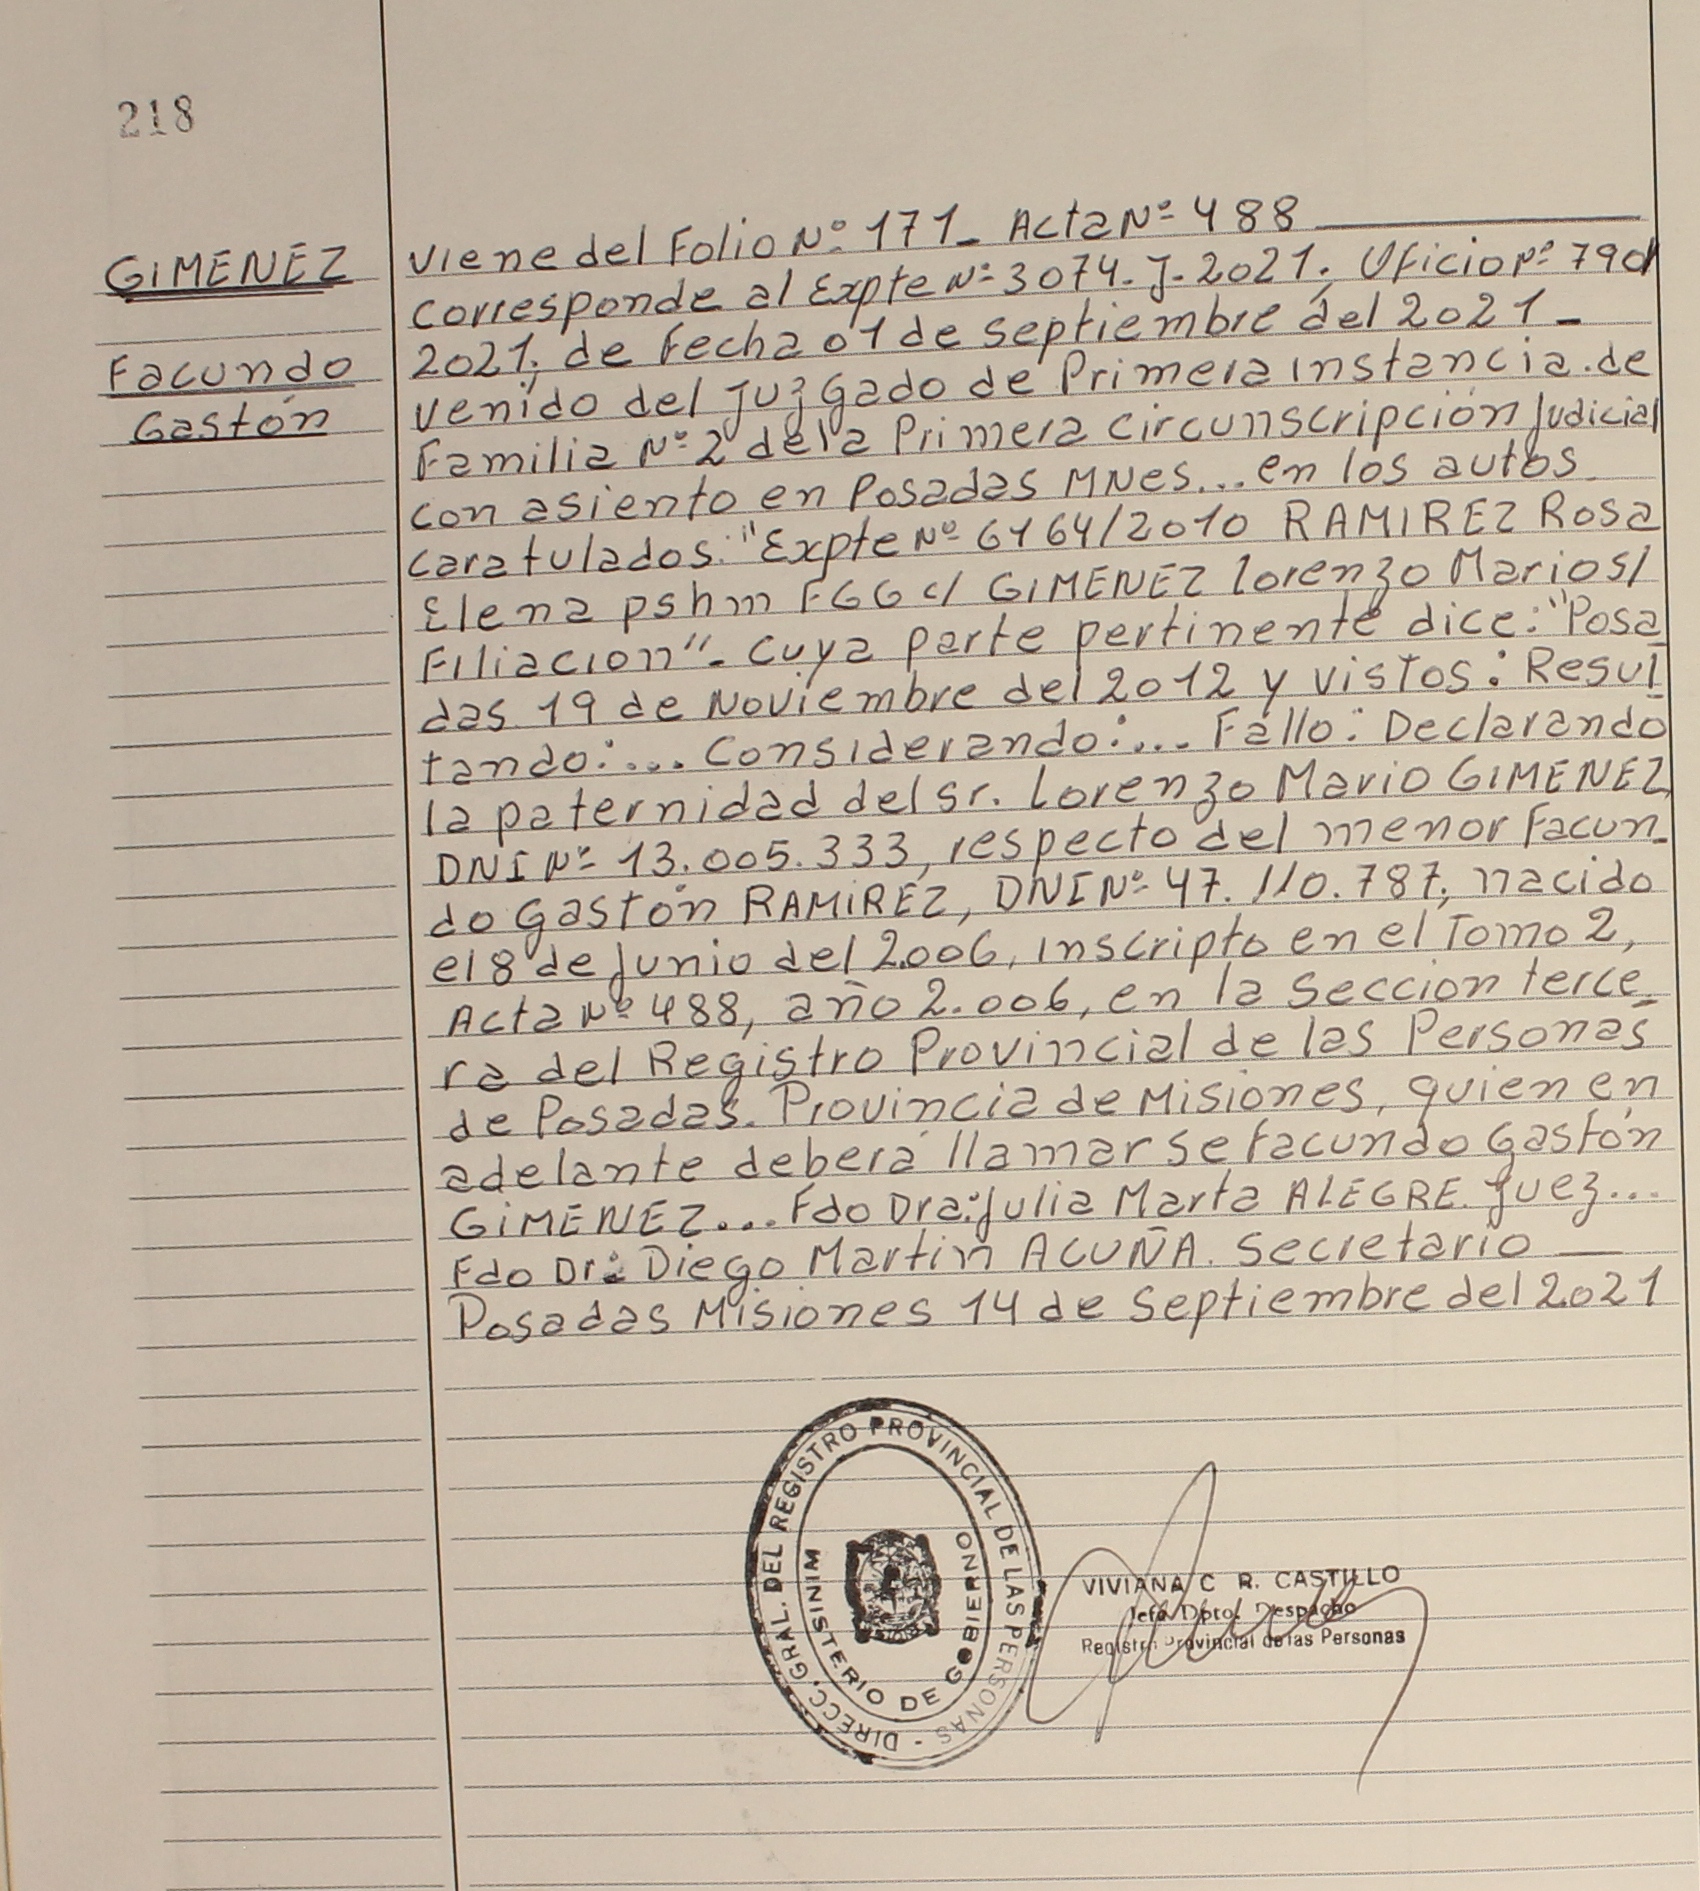 218
GIMENEZ
Facundo
Gastón
Viene del Folio Nº 171_ Acta Nº 488
Corresponde al Expte Nº 3074. J. 2021. Oficio Nº 790/
2021, de fecha 01 de septiembre del 2021_
venido del Juzgado de Primera instancia.de
Familia Nº 2 de la Primera circunscripción Judicial
con asiento en Posadas MNes... en los autos
caratulados: "Expte Nº 6164/2010 RAMIREZ Rosa
Elena pshm FGG c/ GIMENEZ Lorenzo Mario s/
Filiacion"_ cuya parte pertinente dice: "Posa
das 19 de Noviembre del 2012 y vistos: Resul
tando:... Considerando:... Fallo: Declarando
la paternidad del sr. Lorenzo Mario GIMENEZ,
DNI Nº 13.005.333, respecto del menor Facun_
do Gastón RAMIREZ, DNI Nº 47.110.787, nacido
el 8 de Junio del 2006, inscripto en el Tomo 2,
Acta Nº 488, año 2.006, en la seccion terce_
ra del Registro Provincial de las Personas
de Posadas. Provincia de Misiones, quien en
adelante deberá llamarse Facundo Gastón
GIMENEZ... Fdo Dra: Julia Marta ALEGRE. Juez...
Fdo Dr: Diego Martin ACUÑA. Secretario
Posadas Misiones 14 de septiembre del 2021
DIRECC. GRAL. DEL REGISTRO PROVINCIAL DE LAS PERSONAS -
MINISTERIO DE GOBIERNO
VIVIANA C R. CASTILLO
Jefa Dpto. Despacho
Registro Provincial de las Personas